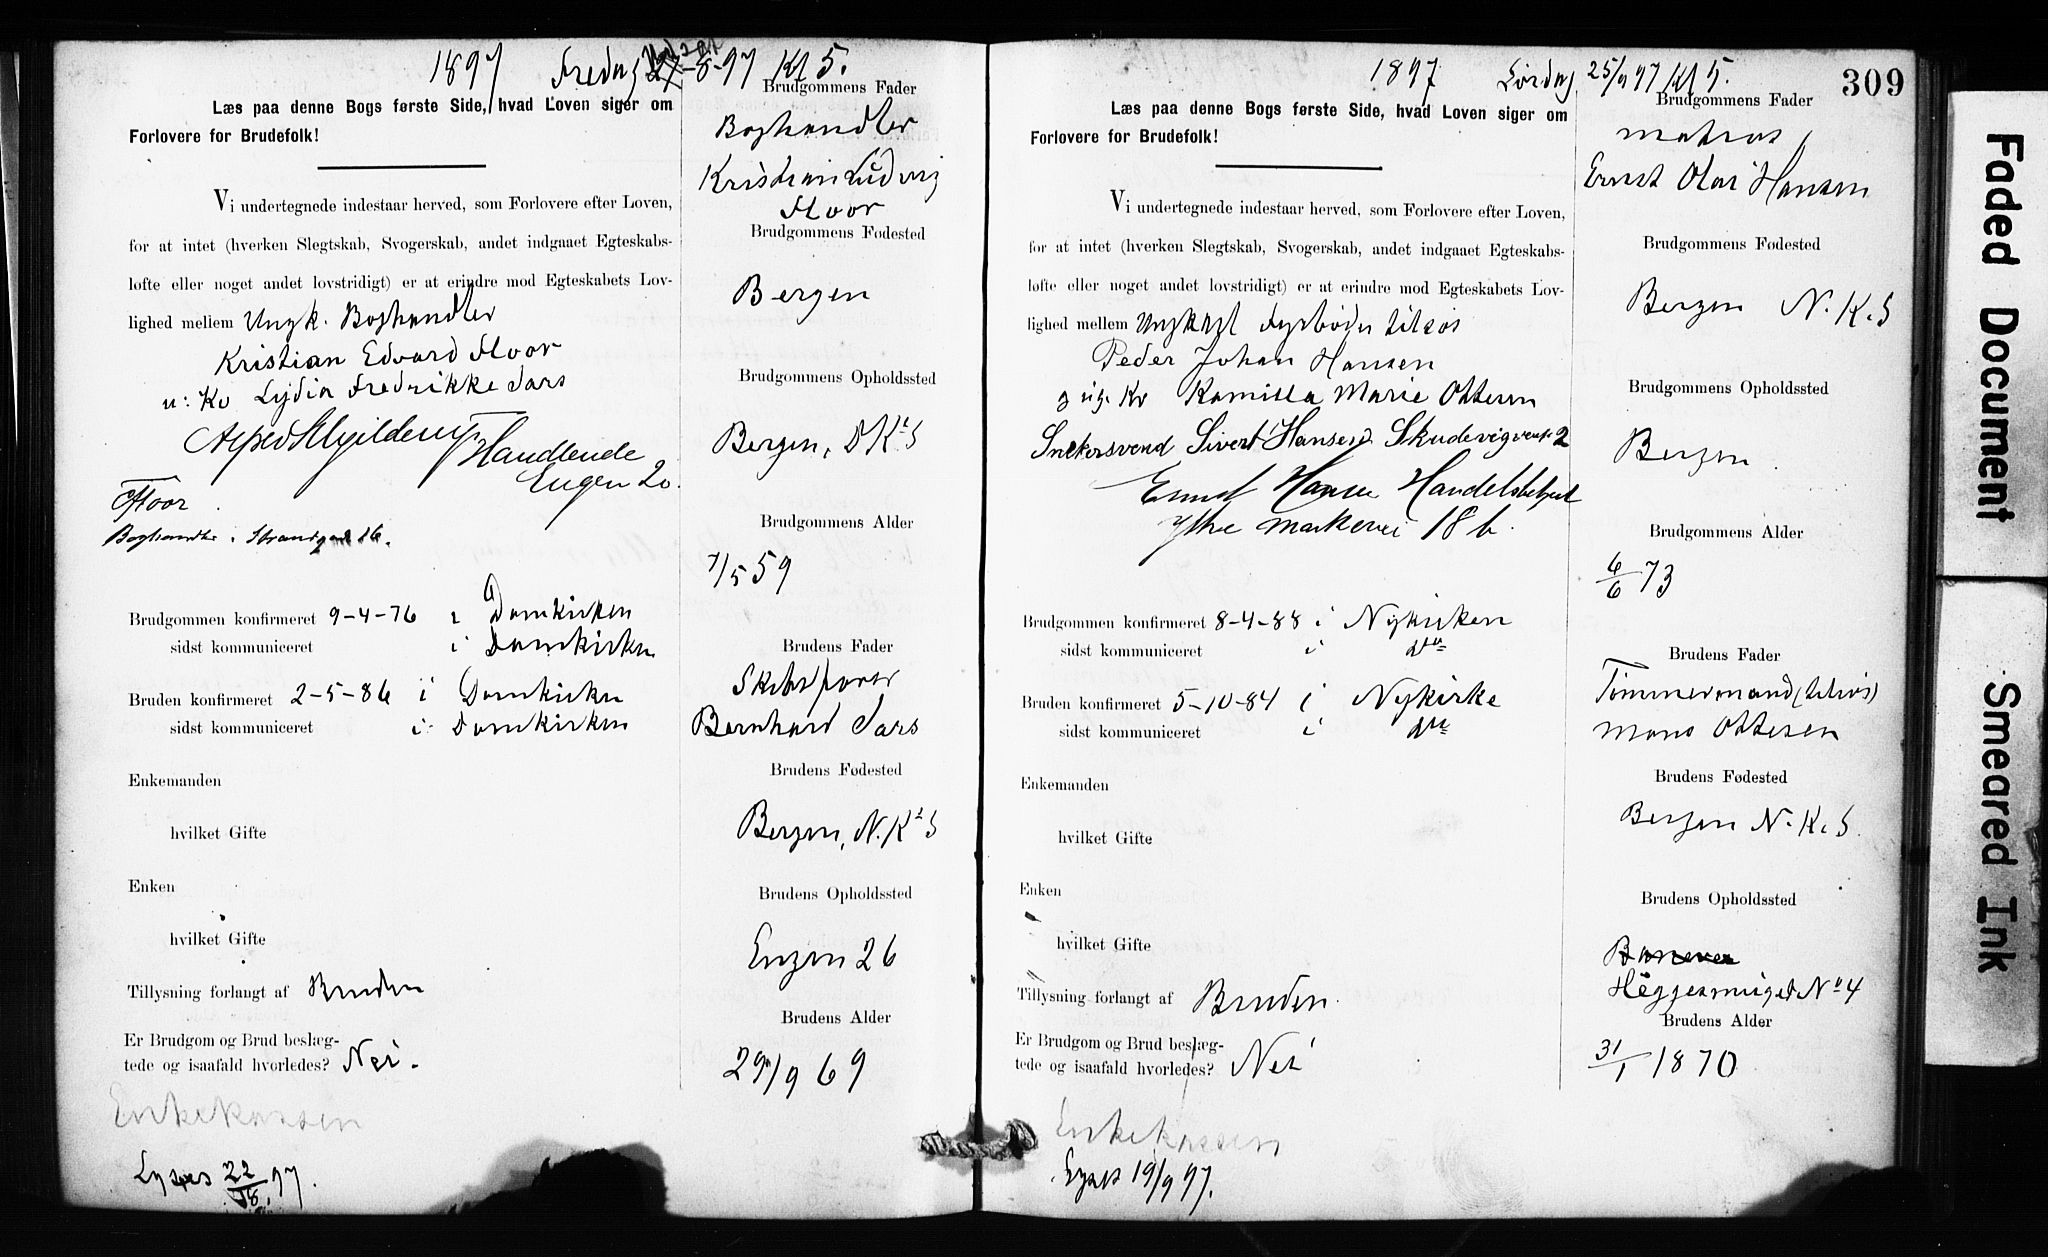 1897 Fredag 27-8-97 Kl 5.
Læs paa denne Bogs første Side, hvad Loven siger om
Forlovere for Brudefolk!
Vi undertegnede indestaar herved, som Forlovere efter Loven,
for at intet (hverken Slegtskab, Svogerskab, andet indgaaet Egteskabs-
løfte eller noget andet lovstridigt) er at erindre mod Egteskabets Lov-
lighed mellem Ungk. Boghandler
Kristian Edvard Floor
u: Kv Lydia Fredrikke Sars
Handlende
Engen 20.
Floor
Boghandler i Strandgad 16.
Brudgommen konfirmeret 9-4-76 i Domkirken
sidst kommuniceret i Domkirken
Bruden konfirmeret 2-5-86 i Domkirken
sidst kommuniceret i Domkirken
Enkemanden
hvilket Gifte
Enken
hvilket Gifte
Tillysning forlangt af Bruden
Er Brudgom og Brud beslæg-
tede og isaafald hvorledes? Nei.
Enkekassen
Lyses 22/8 97.
Brudgommens Fader
Boghandler
Kristian Ludvig
Floor
Brudgommens Fødested
Bergen
Brudgommens Opholdssted
Bergen, D Ks S
Brudgommens Alder
7/5 59
Brudens Fader
Skibsfører
Bernhard Sars
Brudens Fødested
Bergen, N. Ks S
Brudens Opholdssted
Engen 26
Brudens Alder
29/9 69
1897 Lørdag 25/9 97 Kl 5.
309
Læs paa denne Bogs første Side, hvad Loven siger om
Forlovere for Brudefolk!
Vi undertegnede indestaar herved, som Forlovere efter Loven,
for at intet (hverken Slegtskab, Svogerskab, andet indgaaet Egteskabs-
løfte eller noget andet lovstridigt) er at erindre mod Egteskabets Lov-
lighed mellem Ungkarl Fyrbøder tilsøs
Peder Johan Hansen
og ug. Kv Kamilla Marie Ottesen
Snekersvend Sivert Hansen Skudevigveien 2
Ernst Hansen Handelsbetjent
Ytre Markevei 18 b.
Brudgommen konfirmeret 8-4-88 i Nykirken
sidst kommuniceret i do
Bruden konfirmeret 5-10-84 i Nykirke
sidst kommuniceret i do
Enkemanden
hvilket Gifte
Enken
hvilket Gifte
Tillysning forlangt af Bruden
Er Brudgom og Brud beslæg-
tede og isaafald hvorledes? Nei
Enkekassen
Lyses 19/9 97.
Brudgommens Fader
matros
Ernst Olai Hansen
Brudgommens Fødested
Bergen N. K. S
Brudgommens Opholdssted
Bergen
Brudgommens Alder
6/6 73
Brudens Fader
Tømmermand (tilsøs)
Mons Ottesen
Brudens Fødested
Bergen N. K. S.
Brudens Opholdssted
Heggesmuged No 4
Brudens Alder
31/1 1870
Faded Document
Smeared Ink